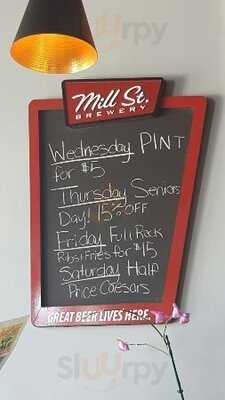 Slurpy
Mill St.
BREWERY
Wednesday PINT
for $5
Thursday Seniors
Day! 15% OFF
Friday Full Rack
Ribs/Fries for $15
Saturday Half
Price Caesars
GREAT BEER LIVES HERE.
Sluurpy